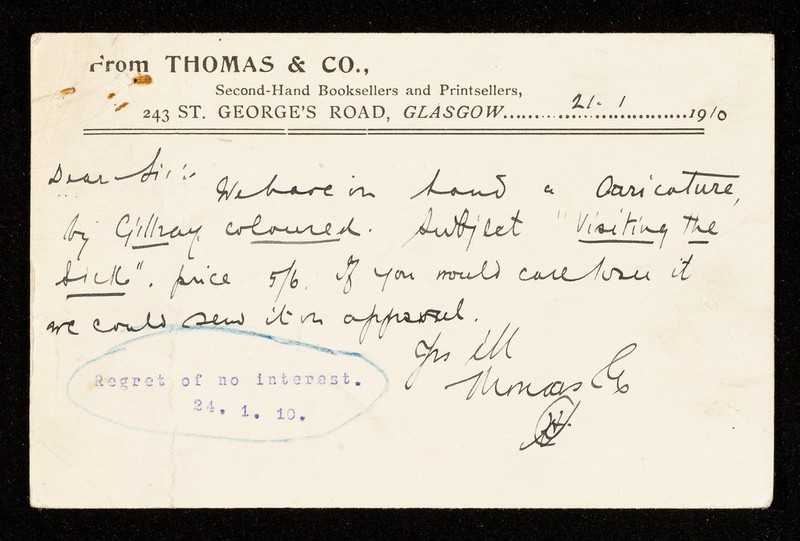 From THOMAS & CO.,
Second-Hand Booksellers and Printsellers,
243 ST. GEORGE'S ROAD, GLASGOW.......21-1.......1910
Dear Sir:-
We have in hand a Caricature,
by Gillray coloured. Subject "Visiting the
Sick". price 5/6. If you would care to see it
we could send it on approval.
Yrs
Thomas & Co
Regret of no interest.
24. 1. 10.